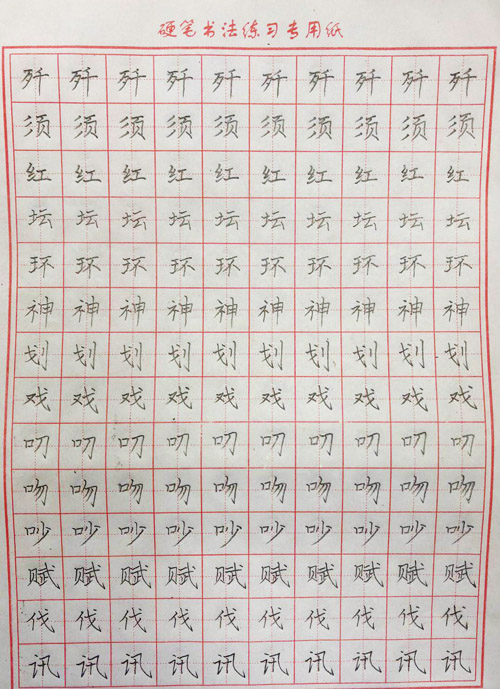 硬笔书法练习专用纸
歼 歼 歼 歼 歼 歼 歼 歼 歼 歼
须 须 须 须 须 须 须 须 须 须
红 红 红 红 红 红 红 红 红 红
坛 坛 坛 坛 坛 坛 坛 坛 坛 坛
环 环 环 环 环 环 环 环 环 环
神 神 神 神 神 神 神 神 神 神
划 划 划 划 划 划 划 划 划 划
戏 戏 戏 戏 戏 戏 戏 戏 戏 戏
叨 叨 叨 叨 叨 叨 叨 叨 叨 叨
吻 吻 吻 吻 吻 吻 吻 吻 吻 吻
吵 吵 吵 吵 吵 吵 吵 吵 吵 吵
赋 赋 赋 赋 赋 赋 赋 赋 赋 赋
伐 伐 伐 伐 伐 伐 伐 伐 伐 伐
讯 讯 讯 讯 讯 讯 讯 讯 讯 讯